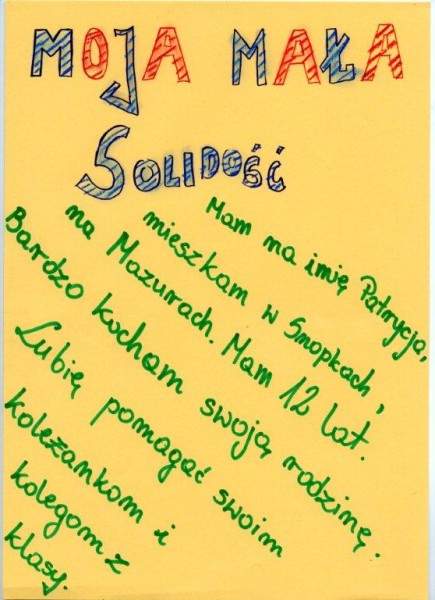 MOJA MAŁA
SOLIDOŚĆ
Mam na imię Patrycja,
mieszkam w Snopkach,
na Mazurach. Mam 12 lat.
Bardzo kocham swoją rodzinę.
Lubię pomagać swoim
koleżankom i
kolegom z
klasy.